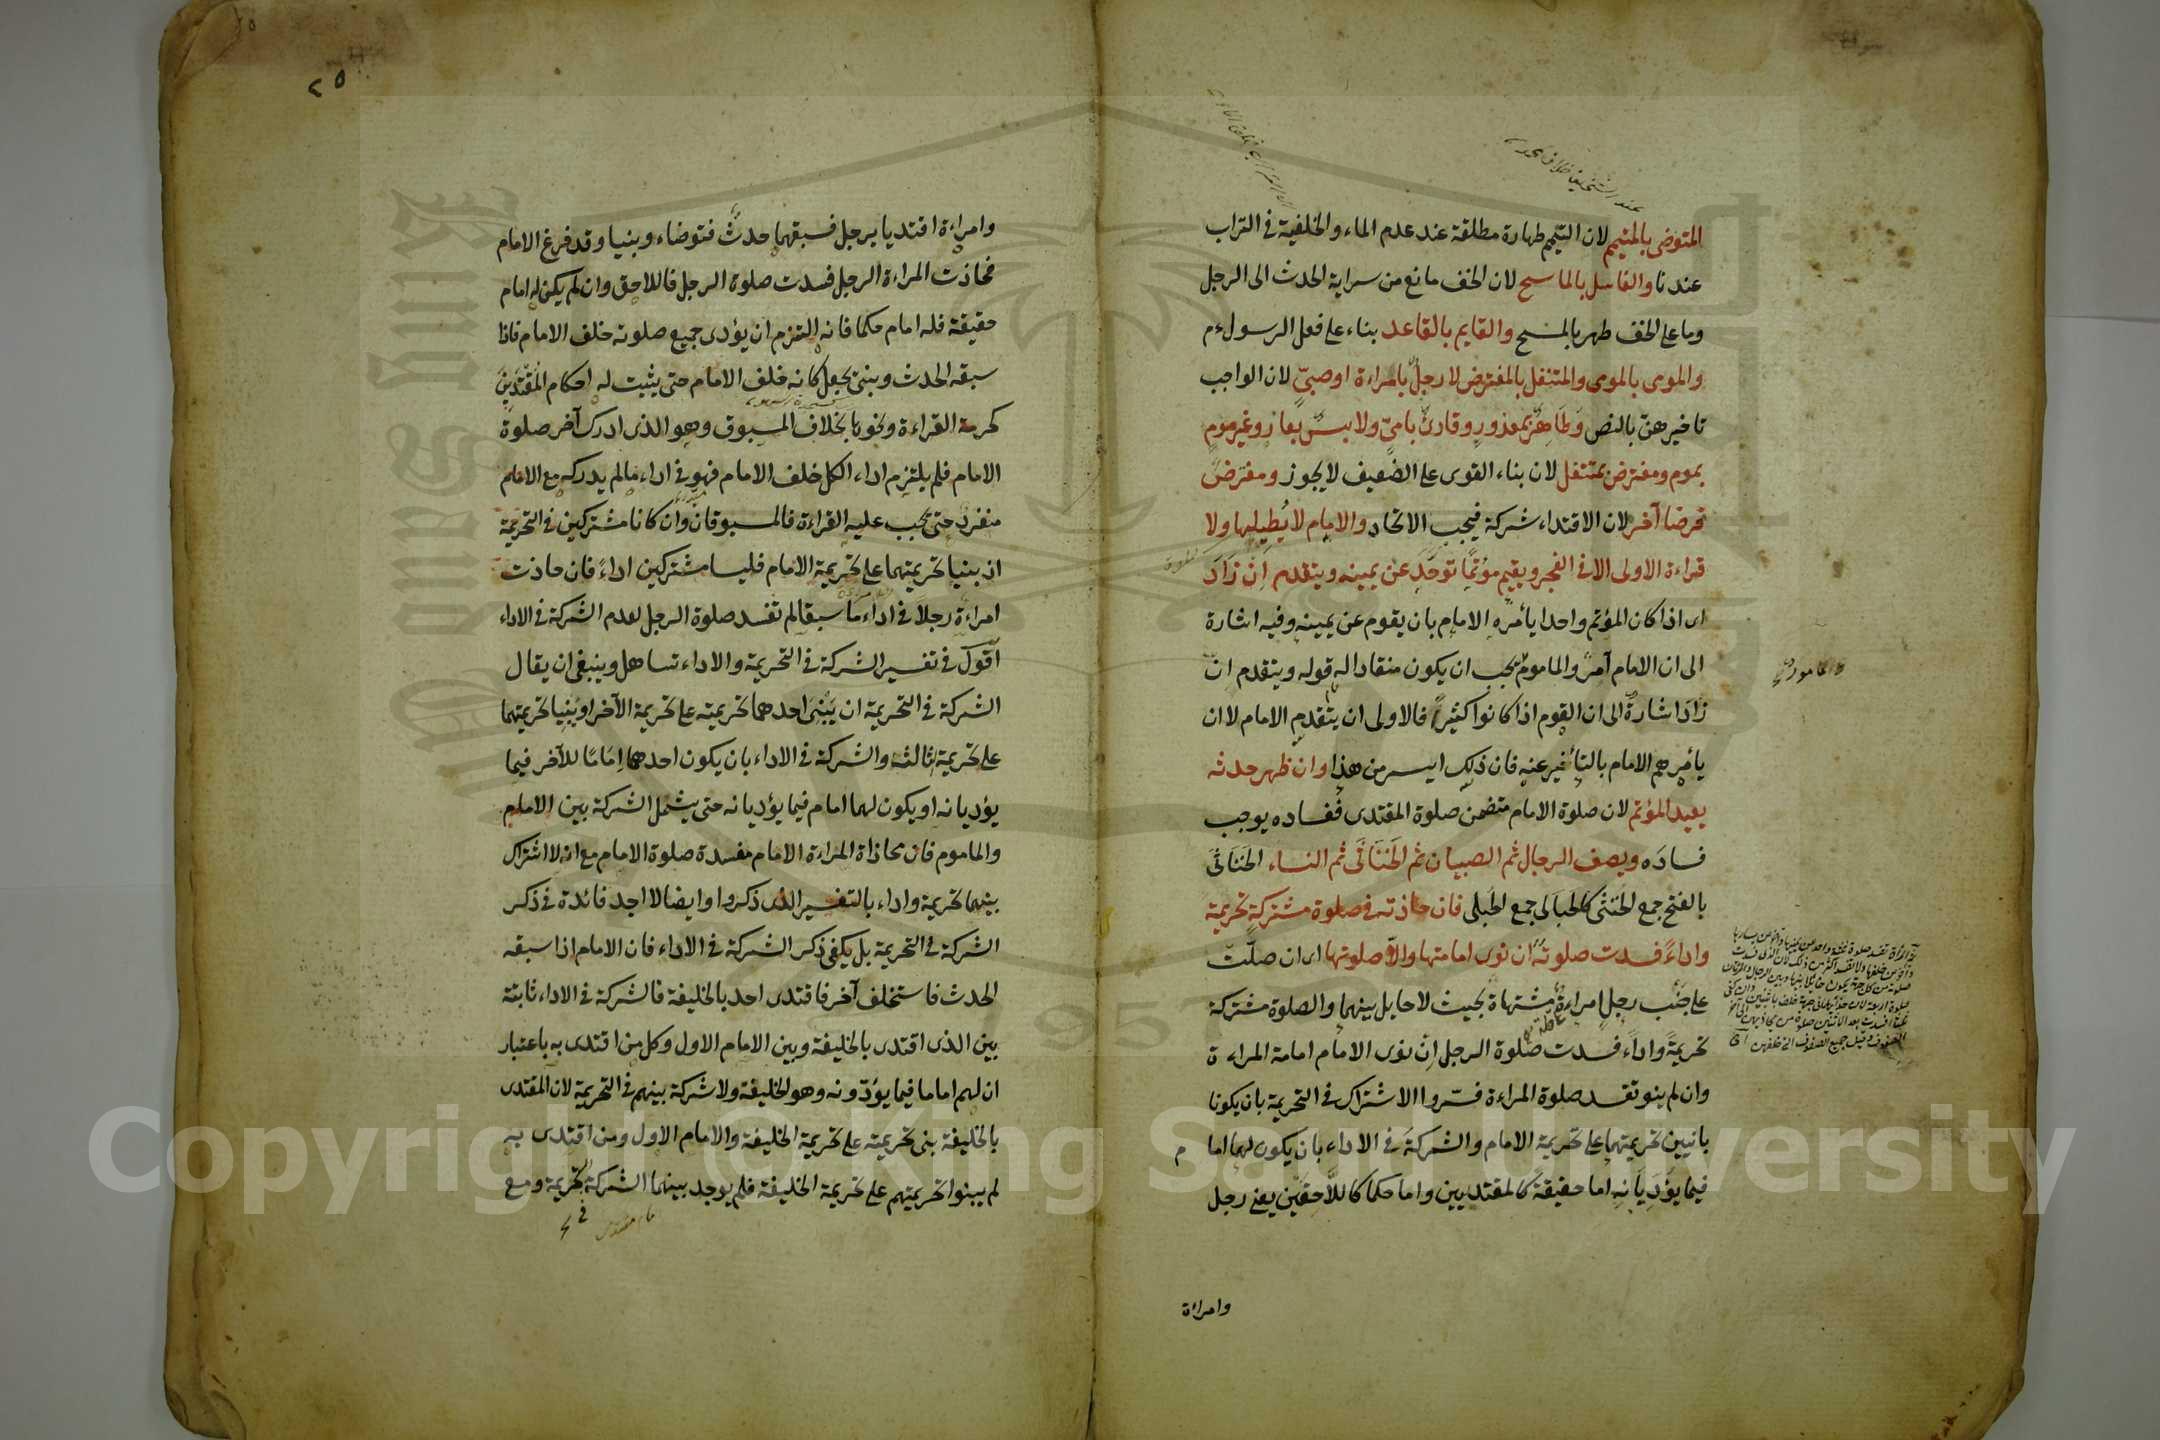 المتوضى بالمتيمم لان التيمم طهارة مطلقة عند عدم الماء والخلفية فى التراب
عندنا والغاسل بالماسح لان الخف مانع من سراية الحدث الى الرجل
وما على الخف طهر بالمسح والقايم بالقاعد بناء على فعل الرسول ءم
والمومى بالمومى والمتنفل بالمفترض لا رجل بامراءة او صبىّ لان الواجب
تاخيرهن بالنص وطاهر بمعذور وقارئ بامىّ ولابس بعار وغير موم
بموم ومفترض بمتنفل لان بناء القوى على الضعيف لا يجوز ومفترض
فرضا آخر لان الاقتداء شركة فيجب الاتحاد والامام لا يُطيلها ولا
قراءة الاولى الا فى الفجر ويقيم مؤتمًا توحّد عن يمينه ويتقدم ان زادَ
اى اذا كان المؤتم واحدا يأمره الامام بان يقوم عن يمينه وفيه اشارة
الى ان الامام آمرٌ والماموم يجب ان يكون منقادا له قوله ويتقدم ان
زادَ اشارةٌ الى ان القوم اذا كانوا كثيراً فالاولى ان يتقدم الامام لا ان
يأمرهم الامام بالتأخير عنه فان ذلك ايسر من هذا وان ظهر حدثه
يعيد المؤتم لان صلوة الامام متضمن صلوة المقتدى ففساده يوجب
فسادَه ويصف الرجال ثم الصبيان ثم الخَنَاثَى ثم النساء الخَنَاثَى
بالفتح جمع الخنثى كالحبَالى جمع الحبلى فان حاذته فى صلوة مشتركةٍ تحريمة
واداءً فسدت صلوته ان نوى امامتها والاّ صلوتها اى ان صلّت
على جنب رجلٍ امراءةٌ مشتهاة بحيث لا حايل بينهما والصلوة مشتركة
تحريمةً واداءً فسدت صلوة الرجل اِن نوى الامام امامة المراءة
وان لم ينو تفسد صلوة المراءة فسّروا الاشتراك فى التحريمة بان يكونا
بانيين تحريمتهما على تحريمة الامام والشركةَ فى الاداء بان يكون لهما امام
فيما يؤدّيانِهِ اما حقيقةً كالمقتديين واما حكما كاللاّحِقَيْن يعنى رجل
وامراءة
٢٥
وامراءة اقتديا برجل فسبقهما حدثٌ فتوضاء وبنيا وقد فرغ الامام
فحاذت المراءة الرجل فسدت صلوة الرجل فاللاحق وان لم يكن له امام
حقيقة فله امام حكما فانه التزم ان يؤدى جميع صلوته خلف الامام فاذا
سبقه الحدث وبنى يجعل كانه خلف الامام حتى يثبت له احكام المقتدين
كحرمة القراءة ونحوها بخلاف المسبوق وهو الذى ادرك آخر صلوة
الامام فلم يلتزم اداء الكل خلف الامام فهو فى اداء مالم يدركه مع الامام
منفرد حتى يجب عليه القراءة فالمسبوقان وان كانا مشتركين فى التحريمة
اذ بنيا تحريمتهما على تحريمة الامام فليسا مشتركين اداءً فان حاذت
امراءة رجلاً فى اداء ما سبقا لم تفسد صلوة الرجل لعدم الشركة فى الاداء
آقول فى تفسير الشركة فى التحريمة والاداء تساهل وينبغى ان يقال
الشركة فى التحريمة ان يَبْنى احدهما تحريمته على تحريمة الآخر او يبنيا تحريمتهما
على تحريمة ثالث والشركة فى الاداء بان يكون احدهما اِمَامًا للآخر فيما
يؤديانه او يكون لهما امام فيما يؤديانه حتى يشمل الشركة بين الامام
والماموم فان محاذاة المراءة الامام مفسدة صلوة الامام مع انه لا اشتراك
بينهما تحريمة واداء بالتفسير الذى ذكروا وايضا لا اجد فائدة فى ذكر
الشركة فى التحريمة بل يكفى ذكر الشركة فى الاداء فان الامام اذا سبقه
الحدث فاستخلف آخر فاقتدى احد بالخليفة فالشركة فى الاداء ثابتة
بين الذى اقتدى بالخليفة وبين الامام الاول وكل من اقتدى به باعتبار
ان لهم اماما فيما يؤدّونه وهو الخليفة ولا شركة بينهم فى التحريمة لان المقتدى
بالخليفة بنى تحريمته على تحريمة الخليفة والامام الاول ومن اقتدى به
لم يبنوا تحريمتهم على تحريمة الخليفة فلم يوجد بينهما الشركة تحريمة ومع
Copyright © King Saud University